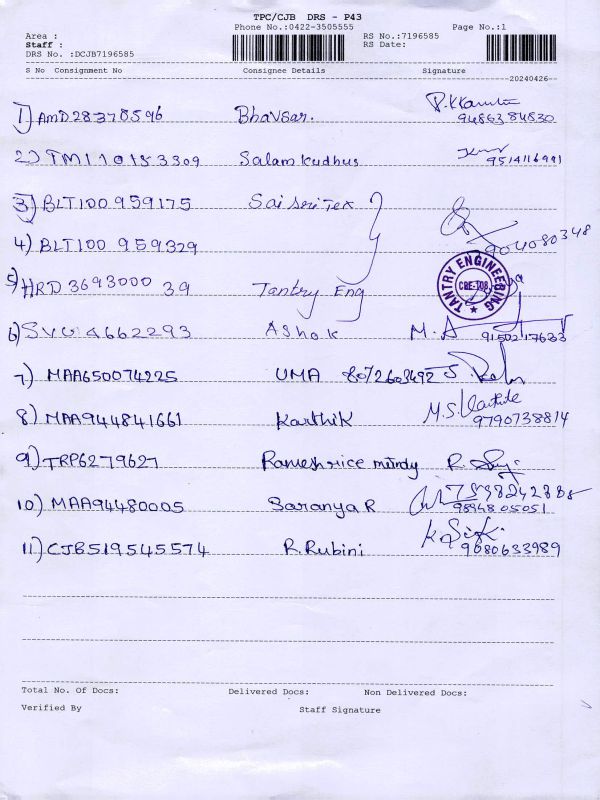 TPC/CJB DRS - P43
Phone No.:0422-3505555 Page No.:1
Area : RS No.:7196585
Staff : RS Date:
DRS No. :DCJB7196585
S No Consignment No Consignee Details Signature
20240426
1) AMD28378596 Bhavsar. 9486384530
2) TM110153309 Salam kudhus 9514116991
3) BLT100959175 Sai Seri Tex
4) BLT100 959329 904080348
5) HRD3693000 39 Tantry Eng TANTRY ENGINEERING CBE-108
6) SVC4662293 Ashok M. A
7) MAA650074225 UMA 8072603492
8) MAA944841661 Karthik M.S. 9790738814
9) TRP6279627 Ramesh rice mundy
10) MAA94480005 Saranya R 98948 05051
11) CJB519545574 R. Rubini 9080633989
Total No. Of Docs: Delivered Docs: Non Delivered Docs:
Verified By Staff Signature